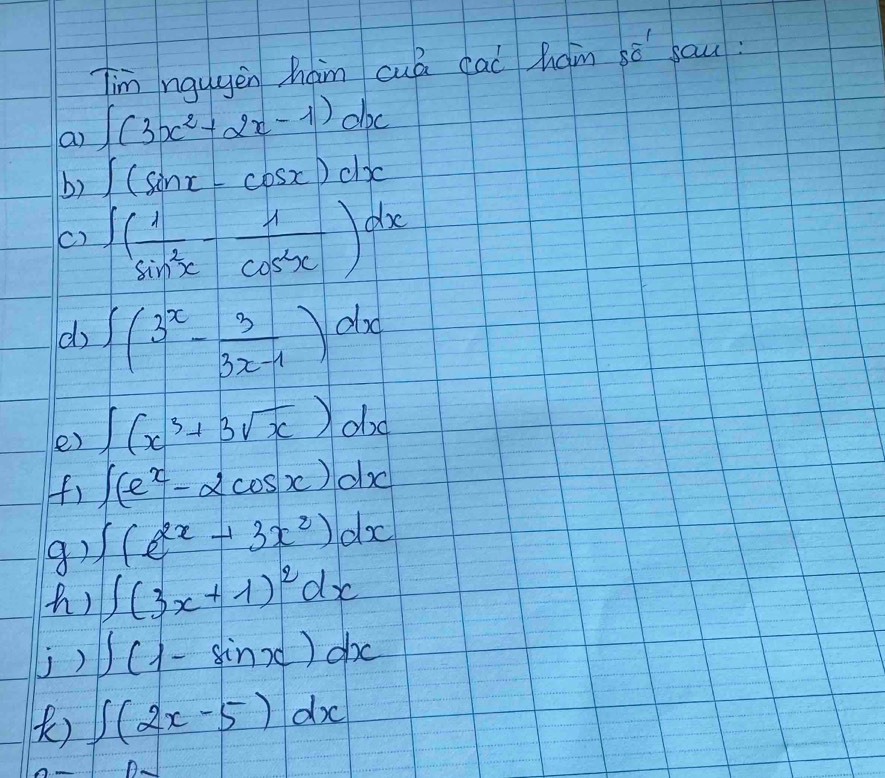 Tìm nguyên hàm của các hàm số sau:
a) ∫(3x² + 2x - 1) dx
b) ∫(sinx - cosx) dx
c) ∫(1/sin²x - 1/cos²x) dx
d) ∫(3ˣ - 3/(3x-1)) dx
e) ∫(x³ + 3√x) dx
f) ∫(eˣ - 2cosx) dx
g) ∫(e²ˣ + 3x²) dx
h) ∫(3x + 1)² dx
j) ∫(1 - sinx) dx
k) ∫(2x - 5) dx